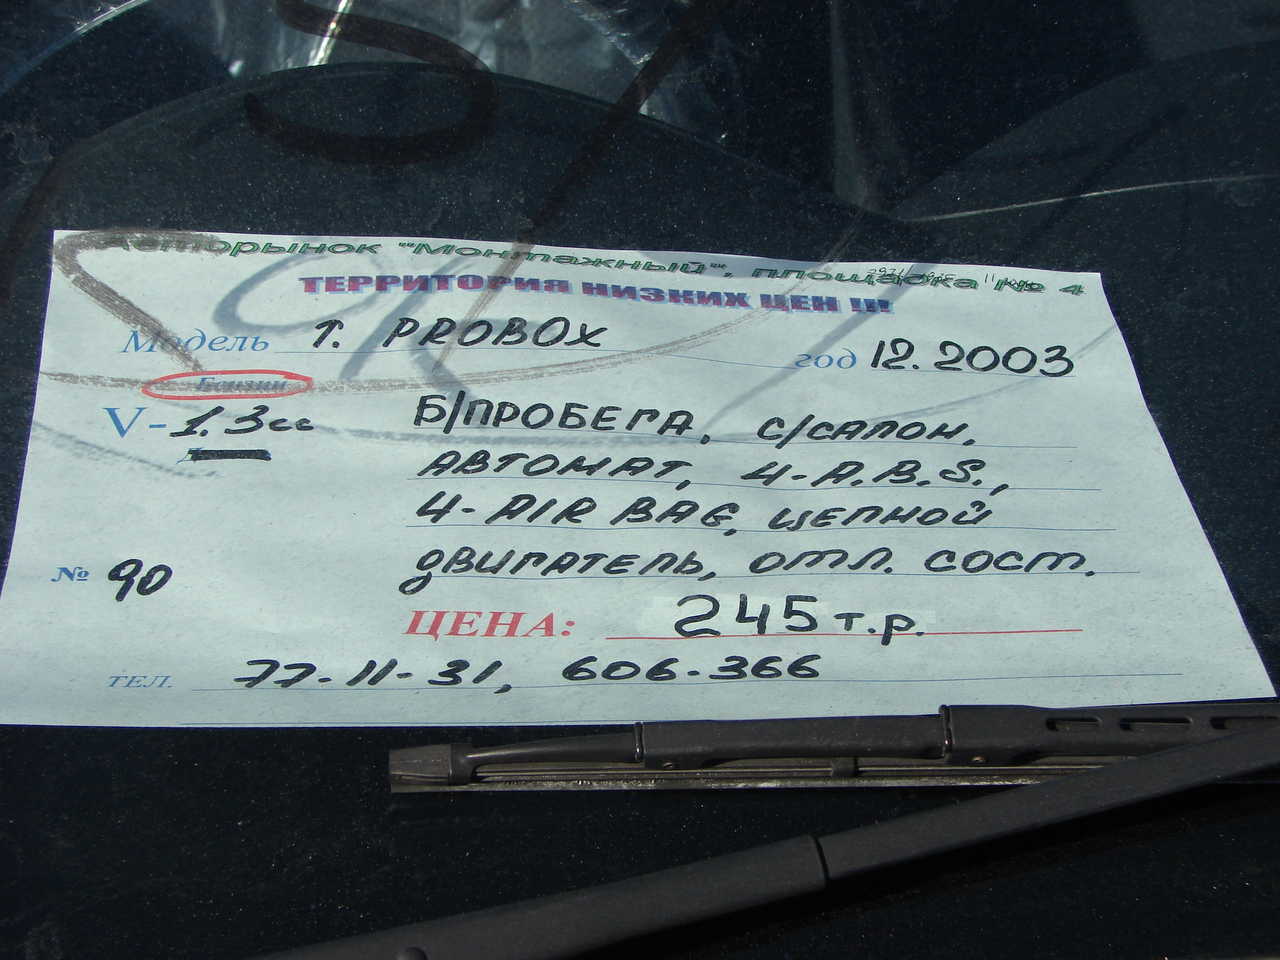 Авторынок "Монтажный", площадка № 4
ТЕРРИТОРИЯ НИЗКИХ ЦЕН !!!
Модель Т. PROBOX год 12.2003
Бензин
V- 1.3 сс Б/ПРОБЕГА, С/САЛОН,
АВТОМАТ, 4-A.B.S.,
4-AIR BAG, ЦЕПНОЙ
ДВИГАТЕЛЬ, ОТЛ. СОСТ.
№ 90
ЦЕНА: 245 т.р.
ТЕЛ. 77-11-31, 606-366